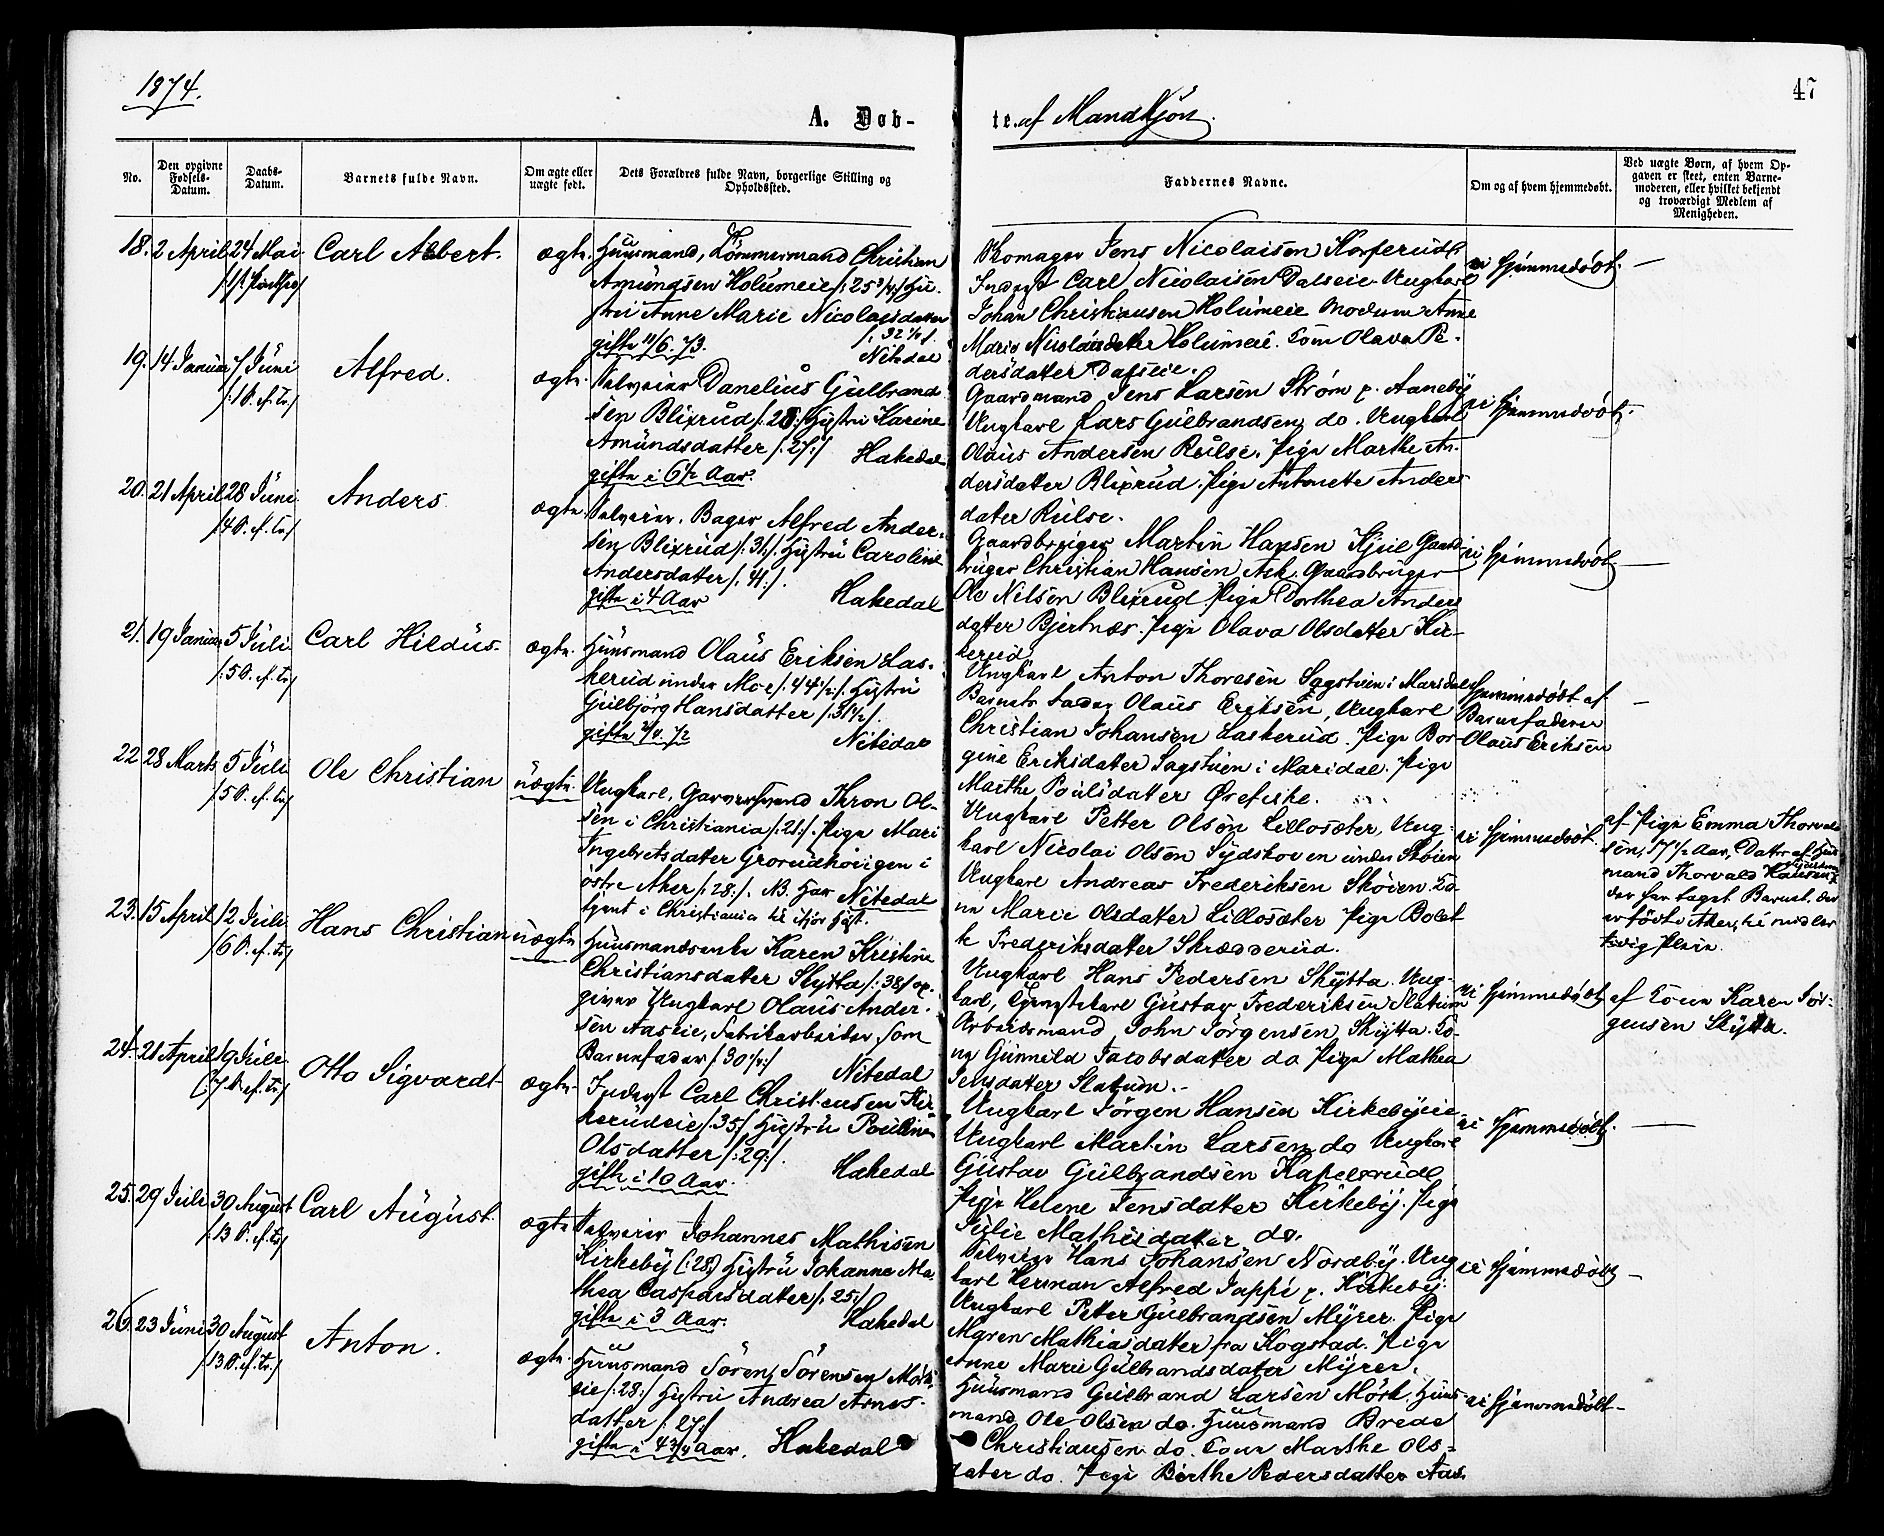 1874.
47
A. Døb-
te. af Mandkjøn.
No.
Den opgivne
Fødsels-
Datum.
Daabs-
Datum.
Barnets fulde Navn.
Om ægte eller
uægte født.
Dets Forældres fulde Navn, borgerlige Stilling og
Opholdssted.
Faddernes Navne.
Om og af hvem hjemmedøbt.
Ved uægte Børn, af hvem Op-
gaven er skeet, enten Barne-
moderen, eller hvilket bekjendt
og troværdigt Medlem af
Menigheden.
18. 2 April 24 Mai
Carl Albert.
ægte.
Huusmand, Tømmermand Christian
Amundsen Holumeie /: 25 3/4 :/ Hu-
stru Anne Marie Nicolaisdatter
/: 32 1/2 :/
gifte 11/6. 73.
Nitedal
Skomager Jens Nicolaisen Korserud
Inderst Carl Nicolaisen Dalseie. Ungkarl
Johan Christiansen Holumeie Moderen Anne
Marie Nicolaisdatter Holumeie. Kone Olava Pe-
dersdatter Dalseie.
ei hjemmedøbt.
19. 14 Januar 7 Juni
/: 1 S. ef. Tr :/
Alfred.
ægte.
Selveier Danelius Gulbrand-
sen Blixrud /: 28 :/ Hustru Karine
Amundsdatter /: 27 :/
Hakedal
gifte i 6 1/2 Aar.
Gaardmand Jens Larsen Strøm p. Aaneby
Ungkarl Lars Gulbrandsen do. Ungkarl
Olaus Andersen Rulse. Pige Marthe An-
dersdatter Blixrud. Pige Antonette Anders
datter Rulse.
ei hjemmedøbt.
20. 21 April 28 Juni
/: 4 S. ef. Tr :/
Anders
ægte.
Selveier. Bager Alfred Ander-
sen Blixrud /: 31 :/. Hustru Caroline
Andersdatter /: 41 :/.
gifte i 4 Aar
Hakedal
Gaardbruger Martin Hansen Kjul Gaard-
bruger Christian Hansen Ask. Gaardbruger
Ole Nilsen Blixrud Pige Dorthea Anders
datter Bjertnæs. Pige Olava Olsdatter Kir-
kerud
ei hjemmedøbt
21. 19 Januar 5 Juli
/: 5 S. ef. Tr :/
Carl Hildus
ægte.
Huusmand Olaus Eriksen Las-
kerud under Moe /: 44 1/2 :/. Hustru
Gulbjørg Hansdatter /: 31 1/2 :/
Nitedal
Ungkarl Anton Thoresen Sagstuen i Marisdal
Barnets Fader Olaus Eriksen, Ungkarl
Christian Johansen Laskerud. Pige Bor-
gine Eriksdatter Sagstuen i Maridal. Pige
Marthe Poulsdatter Ørefiske.
Hjemmedøbt af
Barnefaderen
Olaus Eriksen
22 28 Marts 5 Juli
/: 5 S. ef. Tr :/
Ole Christian
uægte.
Ungkarl, Garversvend Thron Ol-
sen i Christiania /: 21 :/. Pige Mari
Ingebretsdatter Grorudhøigen i
østre Aker /: 28 :/. NB. Har
Nitedal
tjent i Christiania til ifjor Høst.
Ungkarl Petter Olsen Lillosæter, Ung-
karl Nicolai Olsen Sydskoven under Skøien
Ungkarl Andreas Frederiksen Skøien. Ko-
ne Marie Olsdatter Lillosæter Pige Bolet-
te Frederiksdatter Skrædderud.
ei hjemmedøbt
af Pige Emma Thorvald
sen, 17 1/2 Aar, Datter af Huus
mand Thorvald Hansen
der har taget Barnet
23. 15 April 12 Juli
/: 6 S. ef. Tr :/
Hans Christian
uægte
Huusmandsenke Karen Kristine
Christiansdatter Skytta /: 38 :/ op-
giver Ungkarl Olaus Ander-
sen Aaseie, Fabrikarbeider som
Barnefader /: 30 1/2 :/
Nitedal
Ungkarl Hans Pedersen Skytta. Ung-
karl, Tjenstekarl Gustav Frederiksen Slatum
Arbeidsmand John Jørgensen Skytta. Ko-
ne Gunnild Jacobsdatter do Pige Mathea
Jensdatter Slatum.
ei hjemmedøbt
af Kone Karen Jør-
gensen Skytta.
24. 21 April 19 Juli
/: 7 S. ef. Tr :/
Otto Sigvardt
ægte
Inderst Carl Christensen Kir-
kerudeie /: 35 :/ Hustru Pouline
Olsdatter /: 29 :/.
gifte i 10 Aar.
Hakedal
Ungkarl Jørgen Hansen Kirkebyeie
Ungkarl Martin Larsen do Ungkarl
Gustav Gulbrandsen Kapelsrud
Pige Helene Jensdatter Kirkeby. Pige
Julie Mathisdatter do.
ei hjemmedøbt.
25. 29 Juli 30 August
/: 13 S. ef. Tr :/
Carl August
ægte
Selveier Johannes Mathisen
Kirkeby /: 28 :/ Hustru Johanne Ma-
thea Caspersdatter /: 25 :/
gifte i 3 Aar.
Hakedal
Selveier Hans Johansen Nordby. Ung
karl Herman Alfred Jappe p. Kirkeby.
Ungkarl Petter Gulbrandsen Myrer. Pige
Maren Mathiasdatter fra Kogstad. Pige
Anne Marie Gulbrandsdatter Myrer.
ei hjemmedøbt
26. 23 Juni 30 August
/: 13 S. ef. Tr. :/
Anton.
ægte.
Huusmand Søren Sørensen Mørk-
eie /: 28 :/ Hustru Andrea Arnes-
datter /: 27 :/
gifte i 4 3/4 Aar.
Hakedal
Huusmand Gulbrand Larsen Mørk. Huus-
mand Ole Olsen do. Huusmand Brede
Christiansen do. Kone Marthe Ols-
datter do. Pige Birthe Pedersdatter Aas.
ei hjemmedøbt